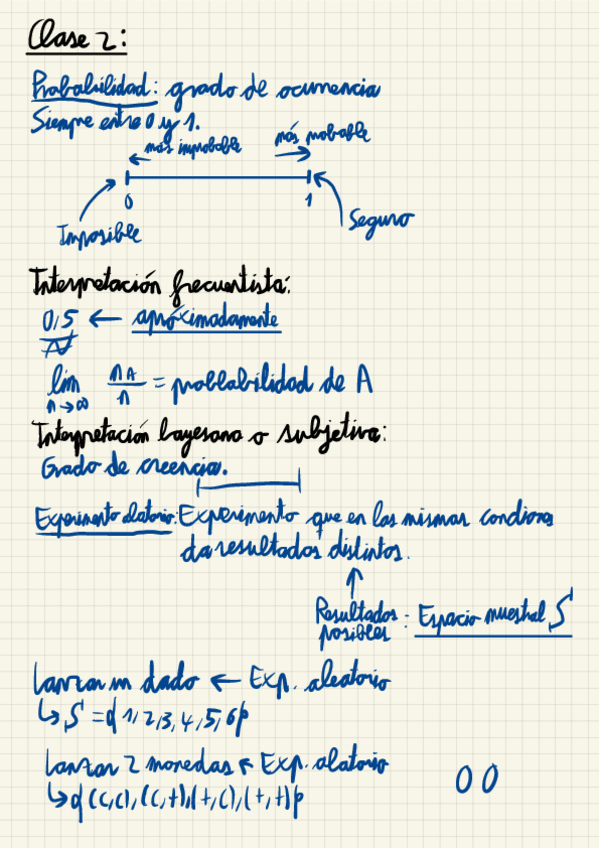 Clase 2:
Probabilidad: grado de ocurrencia
Siempre entre 0 y 1.
más improbable más probable
0 1
Imposible Seguro
Interpretación frecuentista:
0,5 ← apróximadamente
N
lim n→∞ nA/n = problabilidad de A
Interpretación bayesana o subjetiva:
Grado de creencia.
Experimento alatorio: Experimento que en las mismas condiones
da resultados distintos.
Resultados posibles: Espacio muestral S
Lanzar un dado ← Exp. aleatorio
↳ S = {1,2,3,4,5,6}
Lanzar 2 monedas ← Exp. alatorio
↳ {(c,c),(c,+),(+,c),(+,+)}